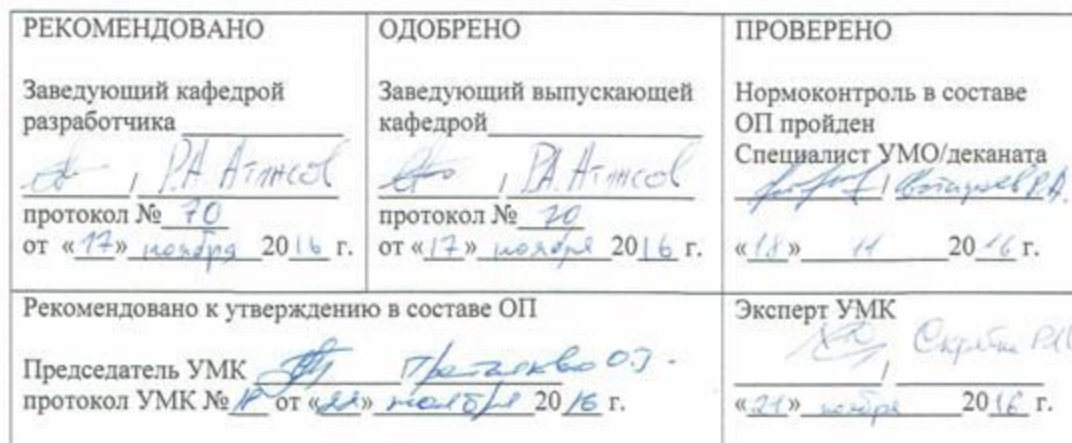 РЕКОМЕНДОВАНО
Заведующий кафедрой
разработчика
/ Р.А. Атласов
протокол № 70
от «17» ноября 2016 г.
ОДОБРЕНО
Заведующий выпускающей
кафедрой
/ Р.А. Атласов
протокол № 70
от «17» ноября 2016 г.
ПРОВЕРЕНО
Нормоконтроль в составе
ОП пройден
Специалист УМО/деканата
/ Р.А.
«18» 11 2016 г.
Рекомендовано к утверждению в составе ОП
Председатель УМК
протокол УМК № от « » ноября 2016 г.
Эксперт УМК
/
«21» ноября 2016 г.